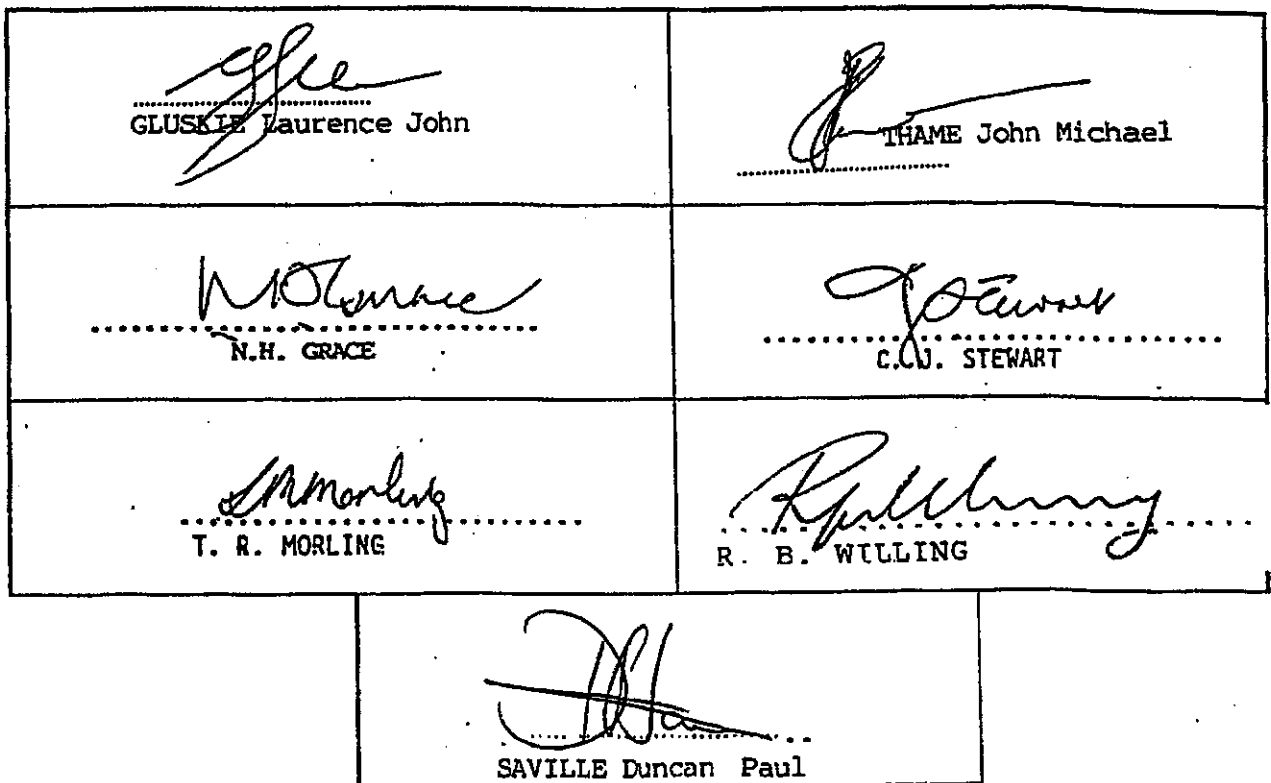 GLUSKIE Laurence John
THAME John Michael
N.H. GRACE
C.J. STEWART
T. R. MORLING
R. B. WILLING
SAVILLE Duncan Paul